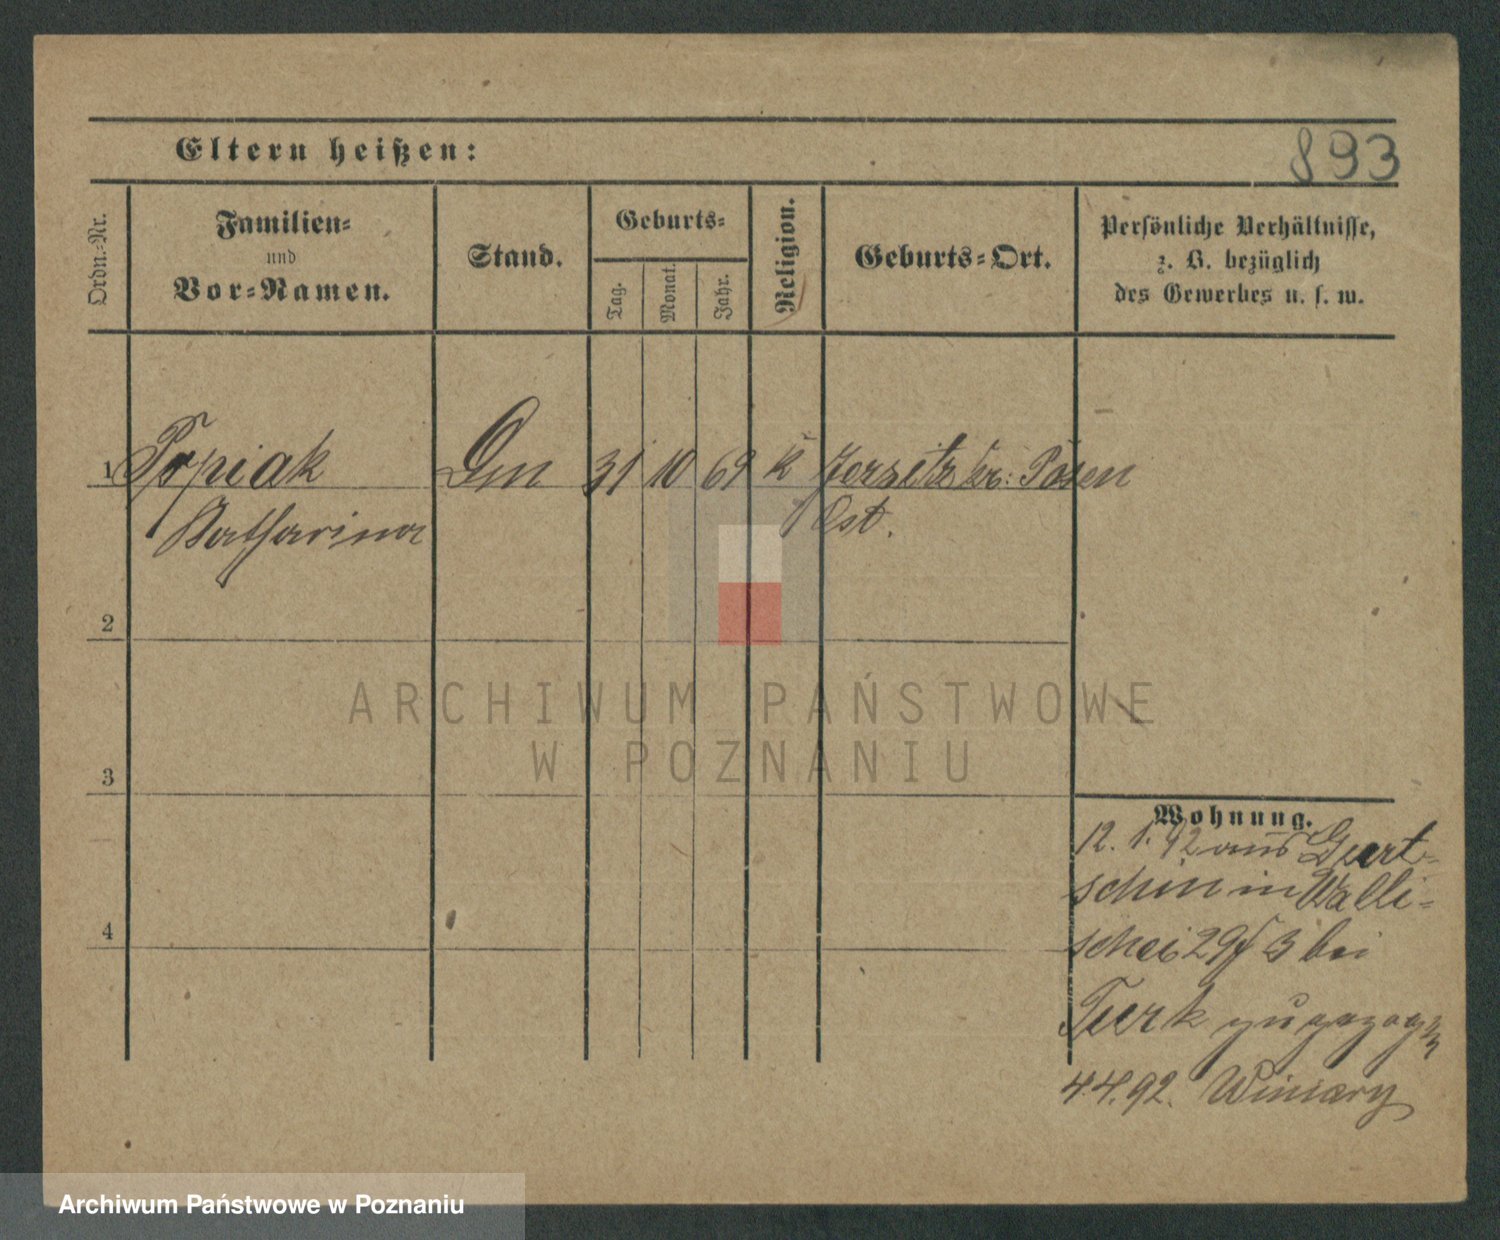 Eltern heißen:
893
Ordn.-Nr.
Familien-
und
Vor-Namen.
Stand.
Geburts-
Tag.
Monat.
Jahr.
Religion.
Geburts-Ort.
Persönliche Verhältnisse,
z. B. bezüglich
des Gewerbes u. s. w.
1 Popiak 31 10 69 K Jersitz Kr: Posen
Katharina Ost.
2
3
4
ARCHIWUM PAŃSTWOWE
W POZNANIU
Wohnung.
12. 1. 92 aus Guert-
schin in Walli-
schei 29 3 bei
Turk zugezogen
4.4.92. Winiary
Archiwum Państwowe w Poznaniu